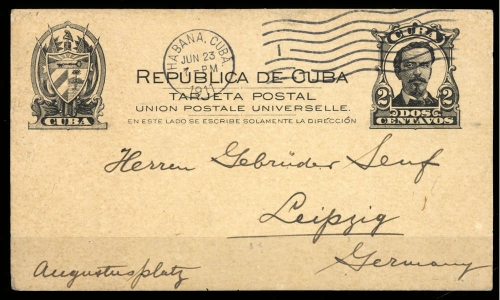 HABANA, CUBA
JUN 23
PM
1911
1
CUBA
REPÚBLICA DE CUBA
TARJETA POSTAL
UNION POSTALE UNIVERSELLE.
EN ESTE LADO SE ESCRIBE SOLAMENTE LA DIRECCIÓN
CUBA
2 2
DOS
CENTAVOS
Herren Gebrüder Senf
Leipzig
Germany
Augustusplatz